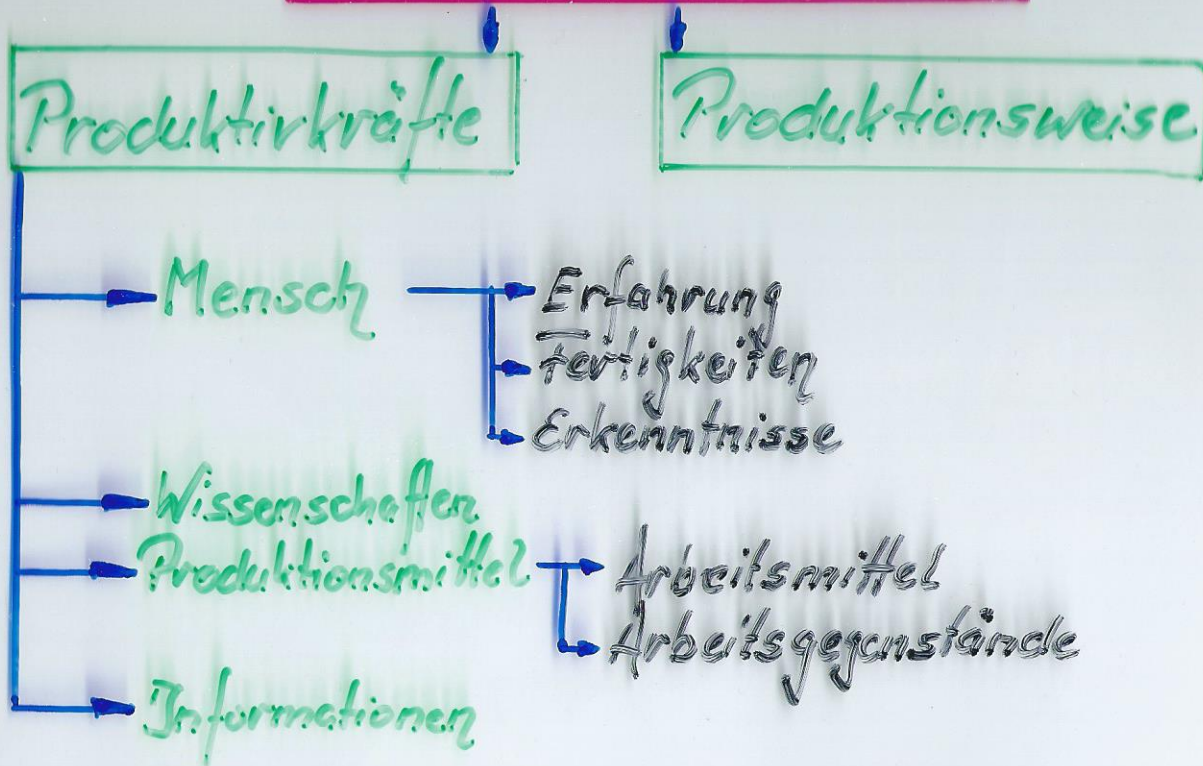 Produktivkräfte
Produktionsweise
Mensch
Erfahrung
Fertigkeiten
Erkenntnisse
Wissenschaften
Produktionsmittel
Arbeitsmittel
Arbeitsgegenstände
Informationen